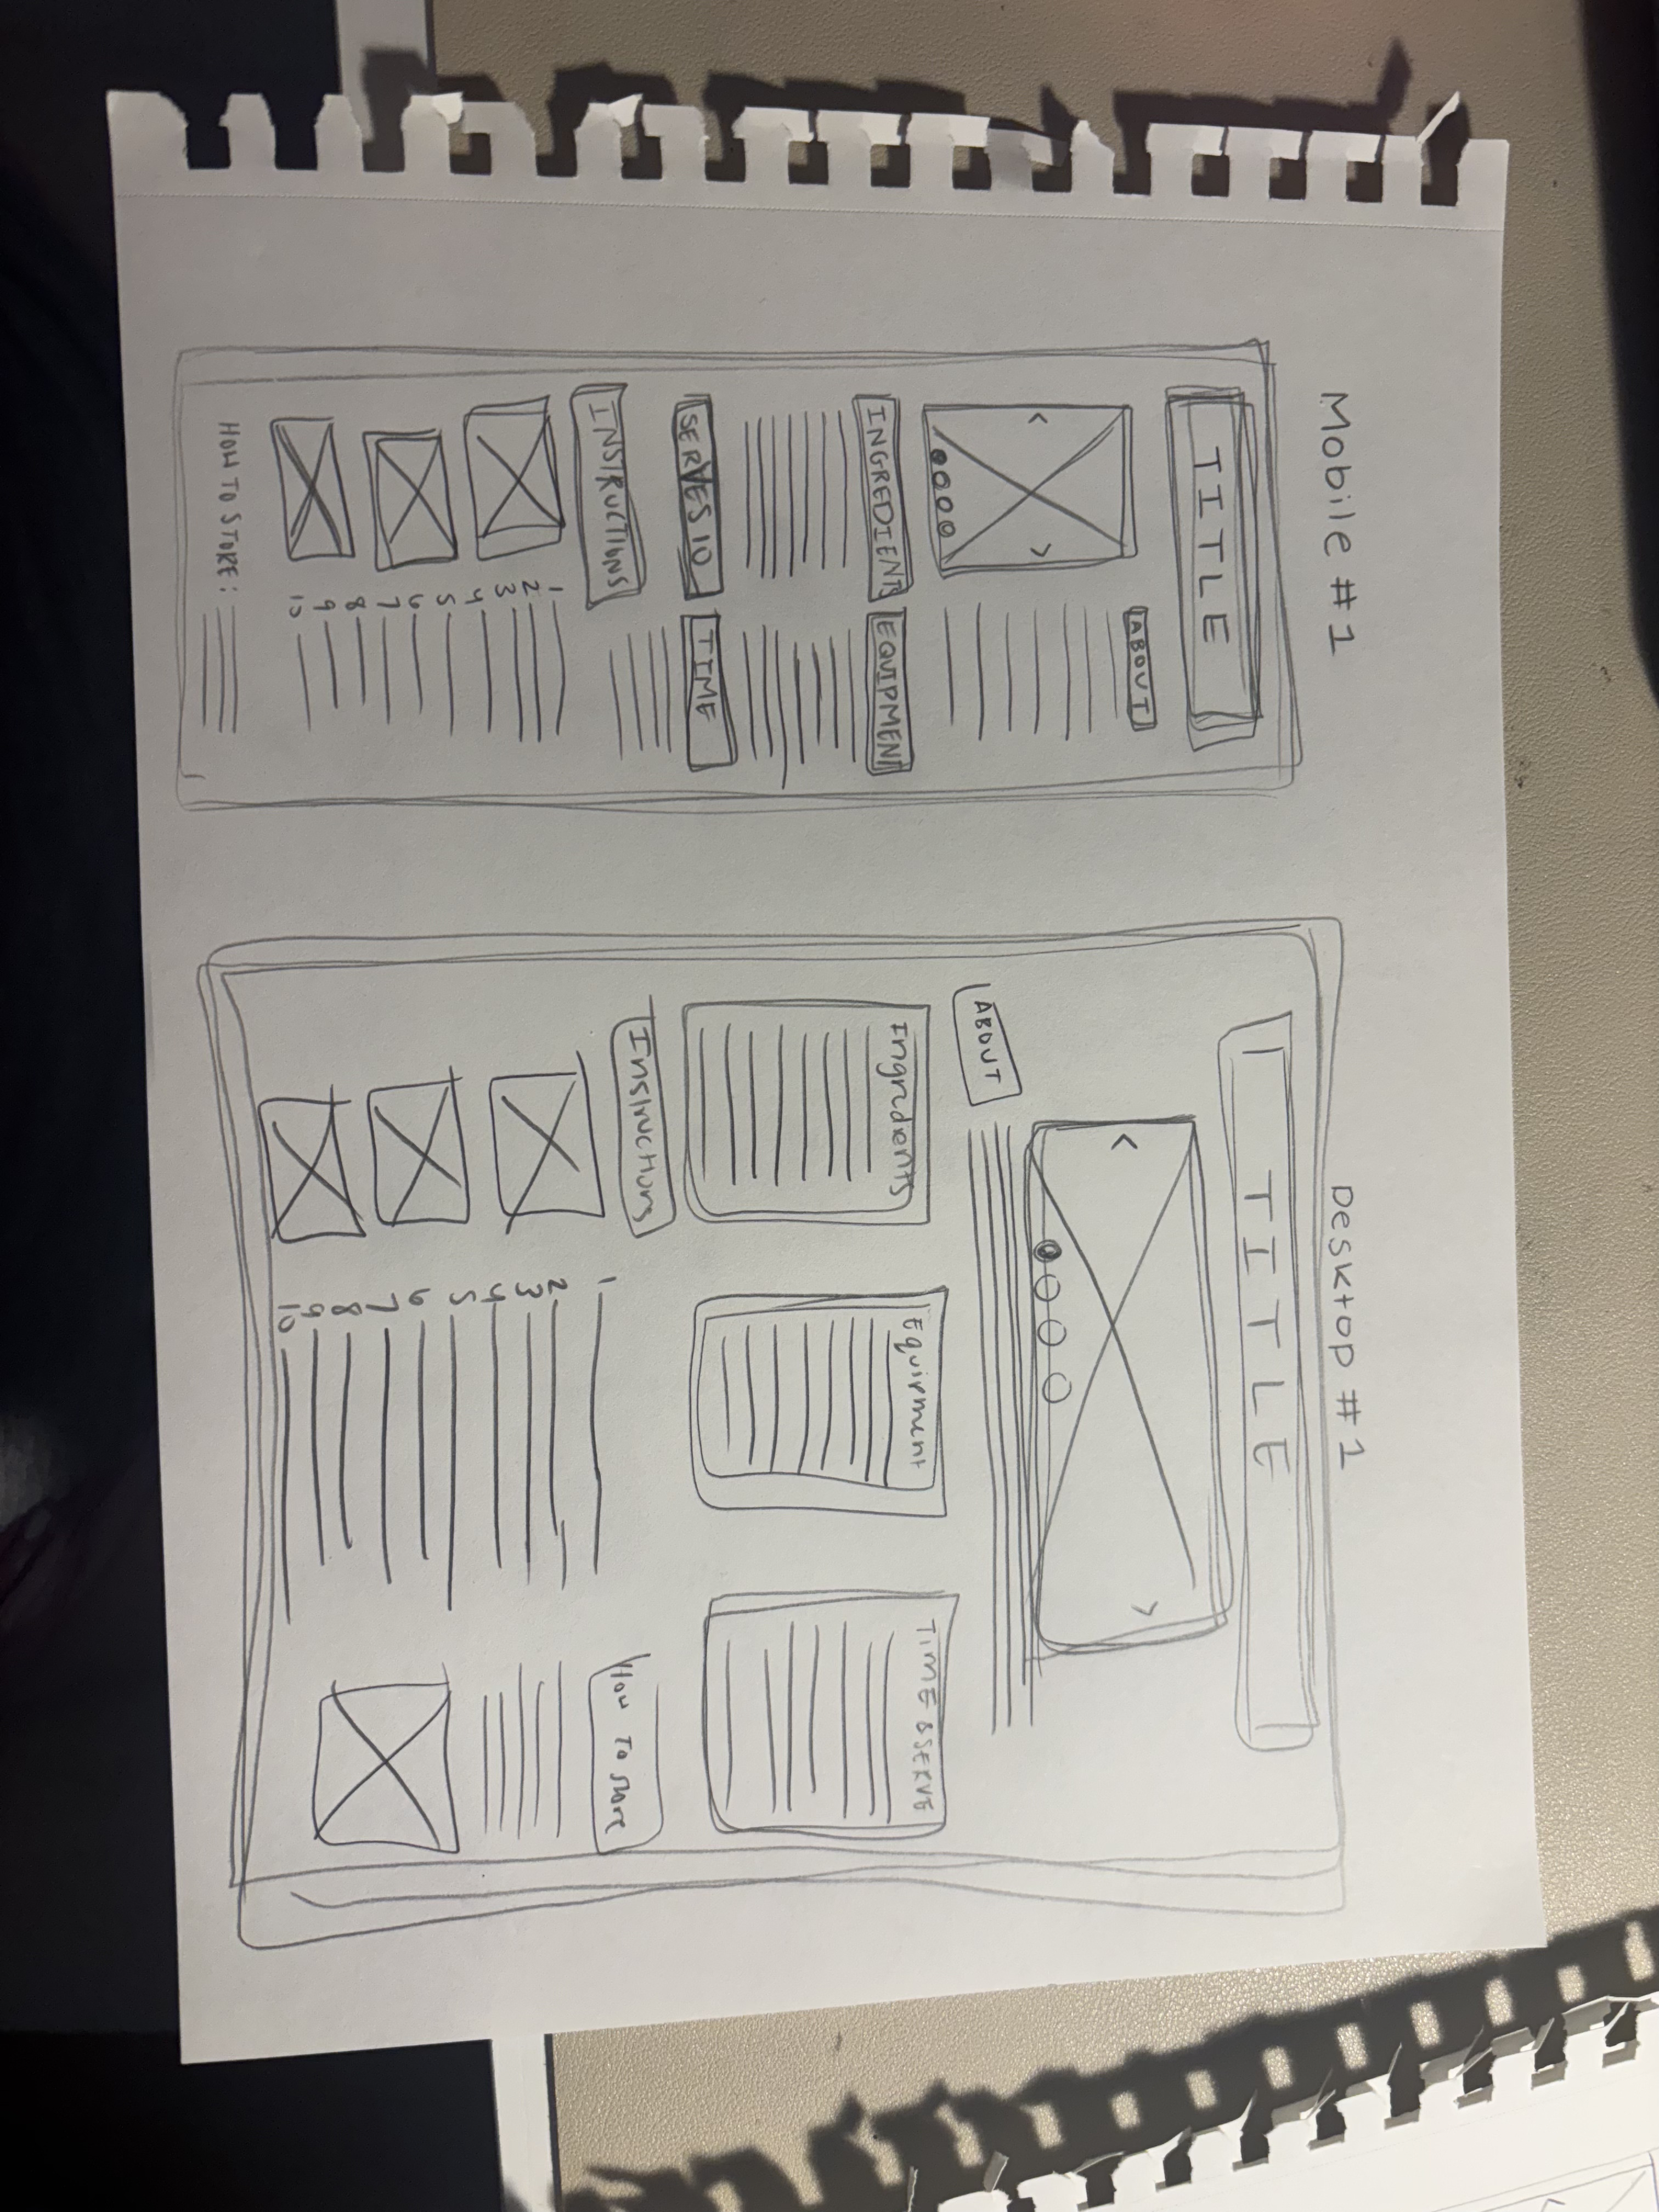 Mobile #1
TITLE
ABOUT
INGREDIENTS
EQUIPMENT
SERVES 10
TIME
INSTRUCTIONS
1
2
3
4
5
6
7
8
9
10
HOW TO STORE:
Desktop #1
TITLE
ABOUT
Ingredients
Equipment
TIME & SERVE
Instructions
1
2
3
4
5
6
7
8
9
10
How To Store